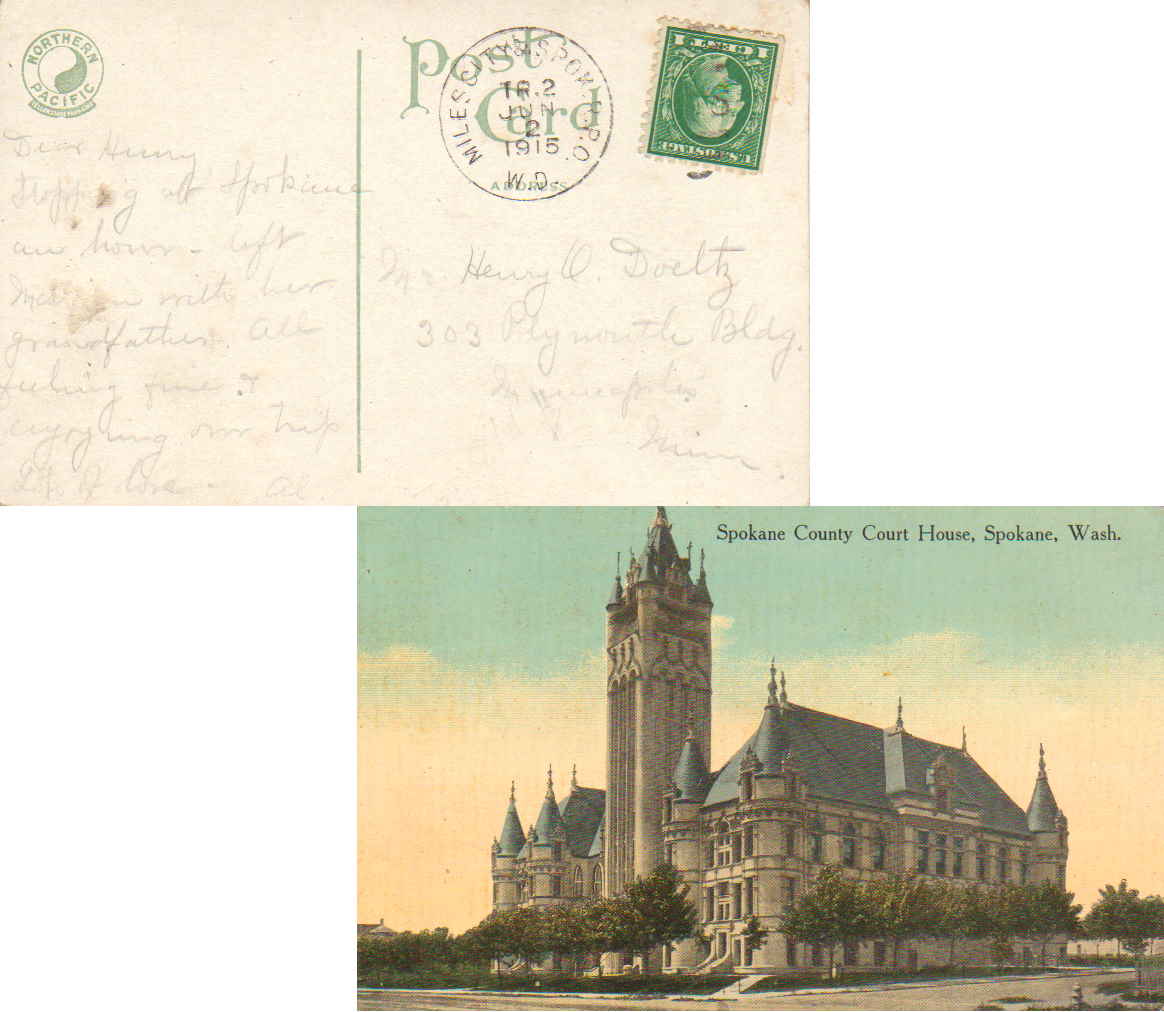 NORTHERN
PACIFIC
Post
Card
ADDRESS
MILES CITY & SPOK. R.P.O.
TR.2
JUN
2
1915
W.D.
U.S. POSTAGE
Dear Henry
Stopping at Spokane
an hour - left
with her
grandfather. All
feeling fine &
enjoying our trip
Lots of love
Al.
Mr. Henry O. Doeltz
303 Plymouth Bldg.
Minneapolis
Minn
Spokane County Court House, Spokane, Wash.